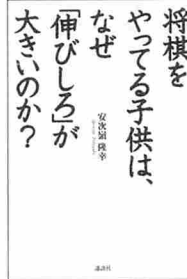 将棋を
やってる子供は、
なぜ
「伸びしろ」が
大きいのか?
安次嶺隆幸
講談社